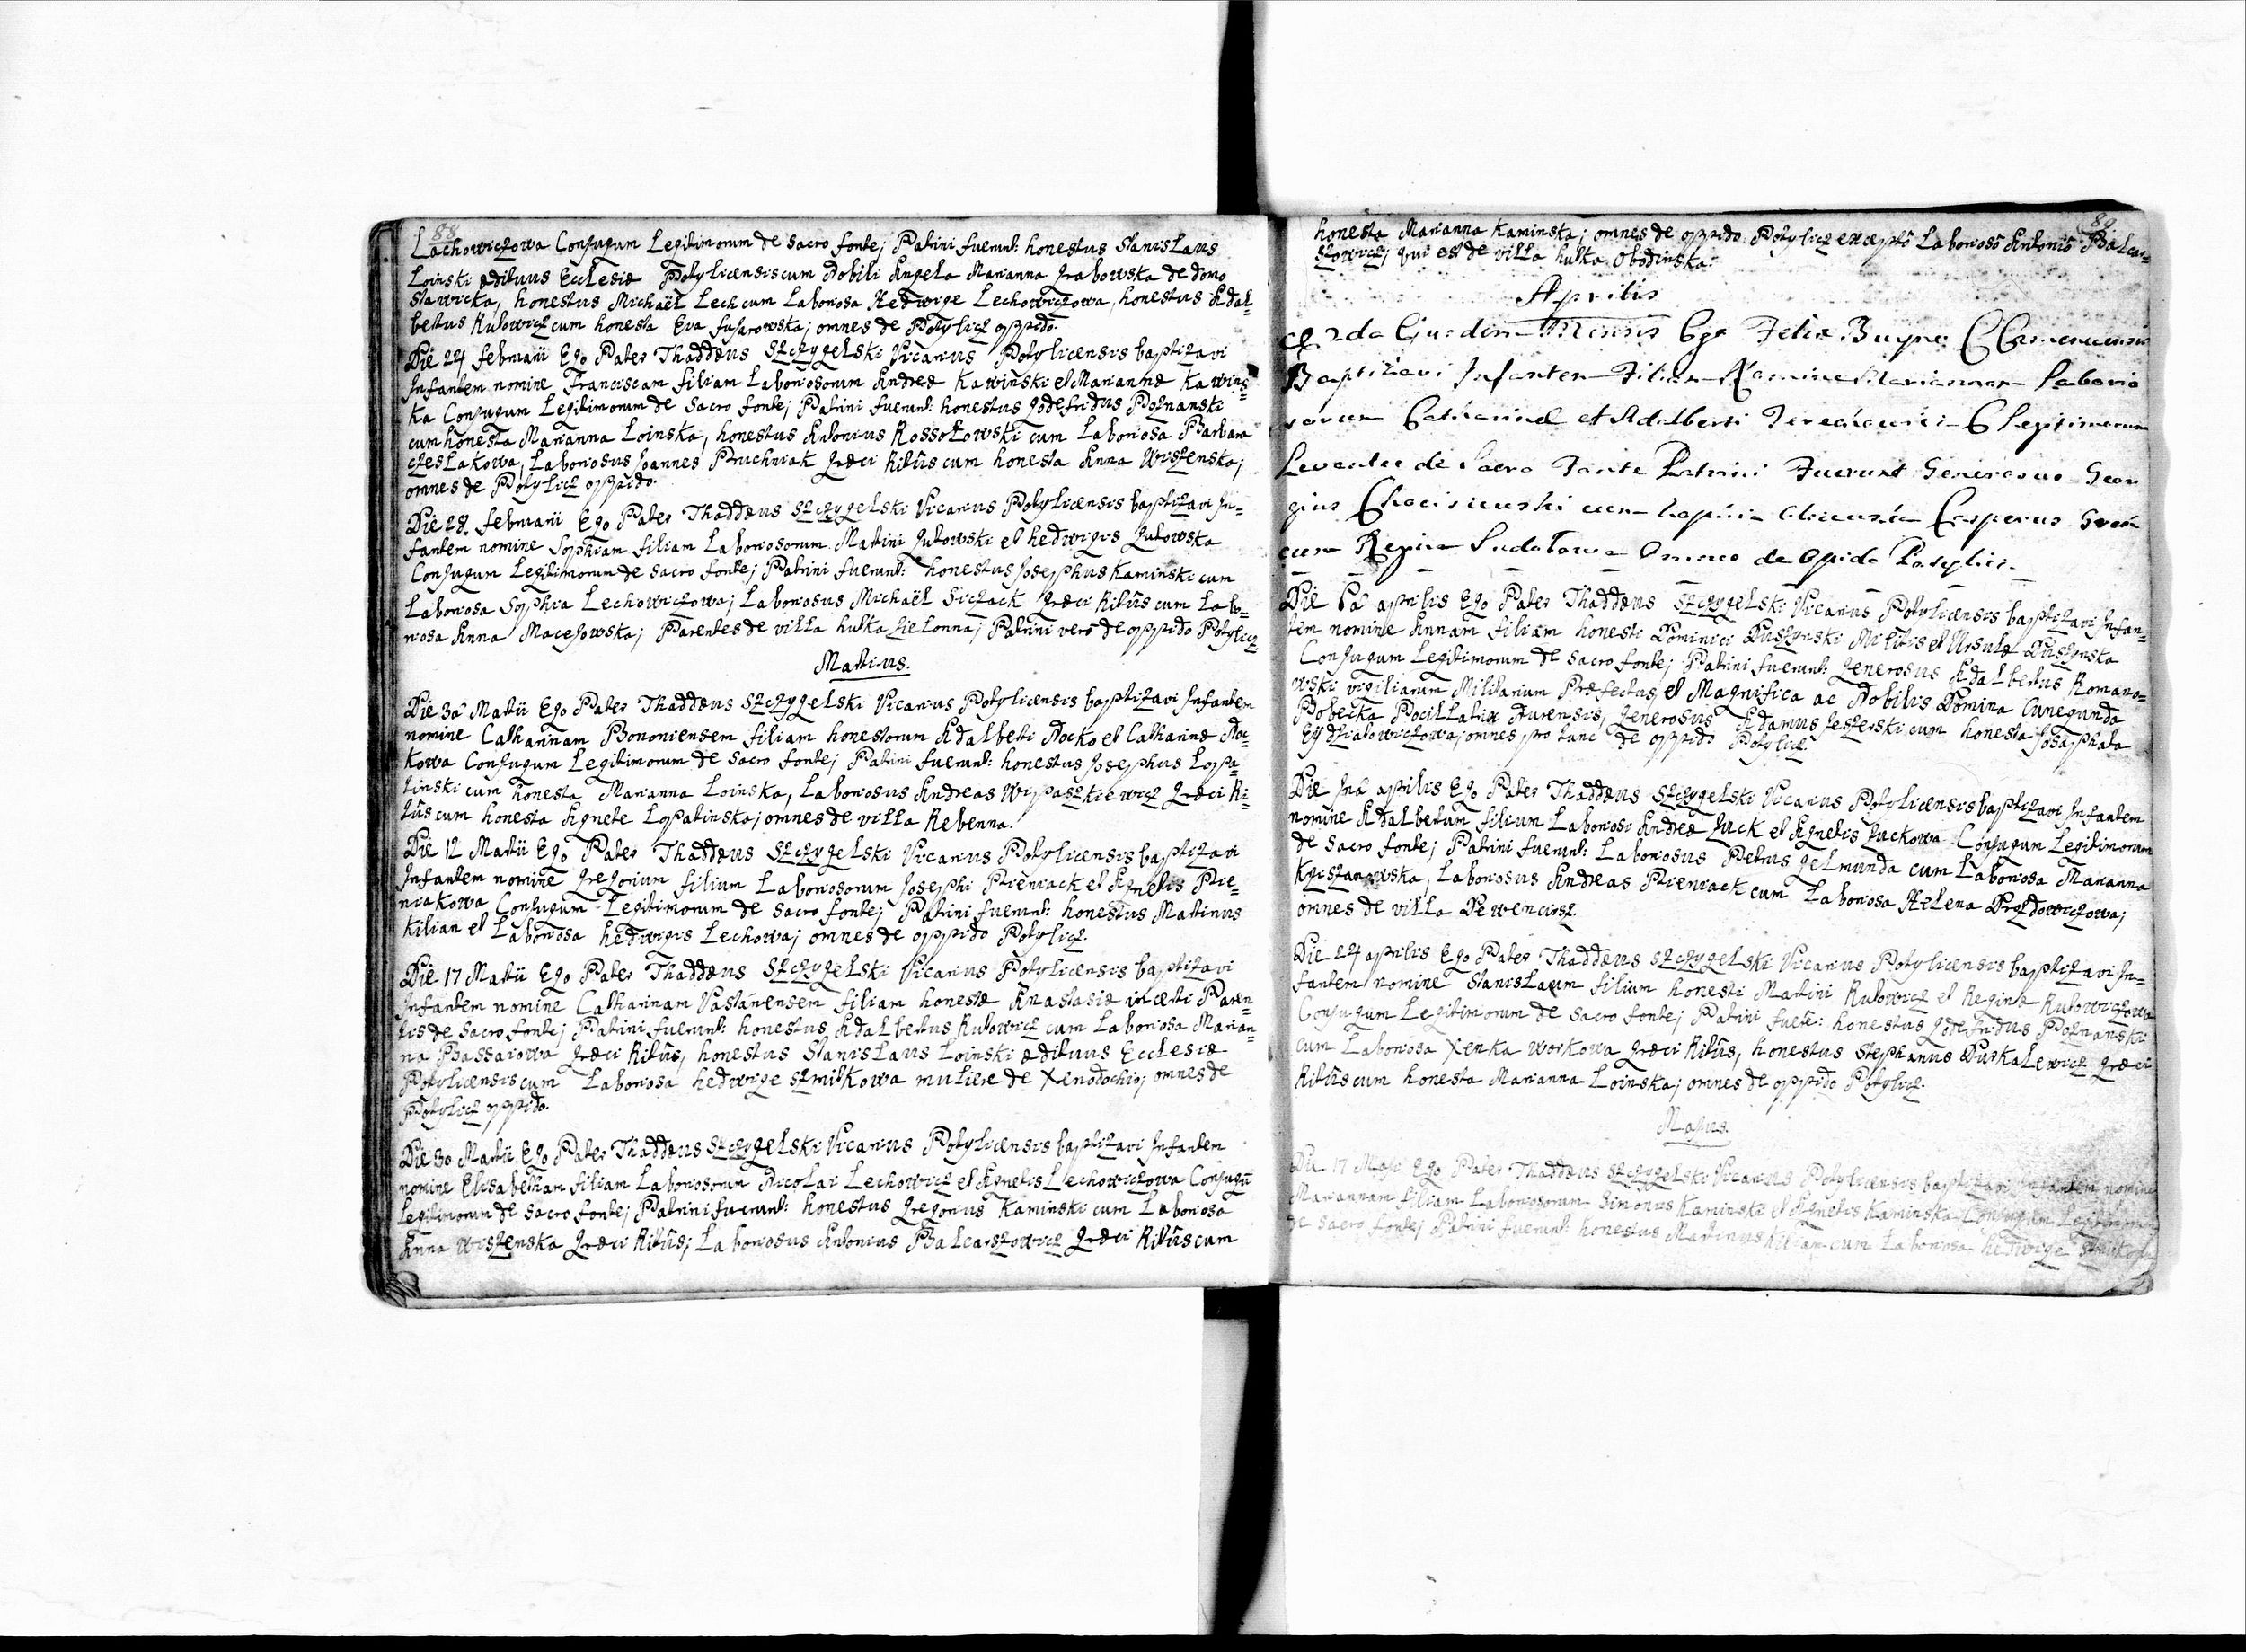 88
Lachowiczowa Conjugum Legitimorum de Sacro fonte; Patrini fuerunt: honestus Stanislaus
Loinski ædituus Ecclesiæ Potylicensis cum Nobili Angela Marianna Grabowska de domo
Slawicka, honestus Michaël Lech cum Laboriosa Hedwige Lechowiczowa, honestus Adal=
bertus Rutowicz cum honesta Eva fusarowska; omnes de Potylicz oppido.
Die 24 februarii Ego Pater Thaddæus Szczygelski Vicarius Potylicensis baptizavi
Infantem nomine Franciscam filiam Laboriosorum Andreæ Kawinski et Mariannæ Kawins=
ka Conjugum Legitimorum de Sacro fonte; Patrini fuerunt: honestus Godefridus Poznanski
cum honesta Marianna Loinska, honestus Antonius Rossołowski cum Laboriosa Barbara
czesLakowa, Laboriosus Joannes Pruchniak Græci Ritûs cum honesta Anna Wiszenska;
omnes de Potylicz oppido.
Die 28 februarii Ego Pater Thaddæus Szczygelski Vicarius Potylicensis baptizavi In=
fantem nomine Sophiam filiam Laboriosorum Martini Gutowski et hedwigis Gutowska
Conjugum Legitimorum de Sacro fonte; Patrini fuerunt: honestus Josephus Kaminski cum
Laboriosa Sophia Lechowiczowa; Laboriosus Michaël Siczack Græci Ritûs cum Labo=
riosa Anna Macejowska; Parentes de villa hutka Zielonna; Patrini verò de oppido Potylicz
Martius.
Die 3a Martii Ego Pater Thaddæus Szczygelski Vicarius Potylicensis baptizavi Infantem
nomine Catharinam Bononiensem filiam honestorum Adalberti Nocko et Catharinæ Noc=
kowa Conjugum Legitimorum de Sacro fonte; Patrini fuerunt: honestus Josephus Lopa=
tinski cum honesta Marianna Loinska, Laboriosus Andreas Wypaszkiewicz Græci Ri=
tûs cum honesta Agnete Lopatinska; omnes de villa Rebenna.
Die 12 Martii Ego Pater Thaddæus Szczygelski Vicarius Potylicensis baptizavi
Infantem nomine Gregorium filium Laboriosorum Josephi Pieniack et Agnetis Pie=
niakowa Conjugum Legitimorum de Sacro fonte; Patrini fuerunt: honestus Martinus
Kilian et Laboriosa hedwigis Lechowa; omnes de oppido Potylicz.
Die 17 Martii Ego Pater Thaddæus Szczygelski Vicarius Potylicensis baptizavi
Infantem nomine Catharinam Vastanensem filiam honestæ Anastasiæ incerti Paren=
tis de Sacro fonte; Patrini fuerunt: honestus Adalbertus Rutowicz cum Laboriosa Marian=
na Bassarowa Græci Ritûs, honestus Stanislaus Loinski ædituus Ecclesiæ
Potylicensis cum Laboriosa hedwige Szmitkowa muliere de Xenodochio; omnes de
Potylicz oppido.
Die 30 Martii Ego Pater Thaddæus Szczygelski Vicarius Potylicensis baptizavi Infantem
nomine Elisabetham filiam Laboriosorum Nicolai Lechowicz et Agnetis Lechowiczowa Conjugũ
Legitimorum de Sacro fonte; Patrini fuerunt: honestus Gregorius Kaminski cum Laboriosa
Anna Wiszenska Græci Ritûs; Laboriosus Antonius Balearszowicz Græci Ritûs cum
89
honesta Marianna Kaminska; omnes de oppido Potylicz exceptô Laboriosô Antoniô Balear=
szowicz; qui est de villa hutka Obedinska.
Aprilis
2da Ejusdem Mensis Ego Felix
Baptizavi Infantem Filiam Nomine Mariannam Laborio
sorum Catharinæ et Adalberti Legitimorum
Levantes de Sacro Fonte Patrini Fuerunt Generosus Geor
gius Casperus
cum Regina Omnes de Opido
Die 6a aprilis Ego Pater Thaddæus Szczygelski Vicarius Potylicensis baptizavi Infan=
tem nomine Annam filiam honesti Dominici Duszynski Militis et Ursulæ Duszynska
Conjugum Legitimorum de Sacro fonte; Patrini fuerunt: Generosus Adalbertus Romano=
wski vigiliarum Militarium Præfectus, et Magnifica ac Nobilis Domina Cunegunda
Pobecka Pocillatrix Nurensis, Generosus Adamus Jeszerski cum honesta Josaphata
Eydziatowiczowa; omnes pro tunc de oppido Potylicz
Die aprilis Ego Pater Thaddæus Szczygelski Vicarius Potylicensis baptizavi Infantem
nomine Adalbertum filium Laboriosi Andreæ Juck et Agnetis Juckowa Conjugum Legitimorum
de Sacro fonte; Patrini fuerunt: Laboriosus Petrus Gelmunda cum Laboriosa Marianna
Krziszanowska, Laboriosus Andreas Pieniack cum Laboriosa Helena Drozdowiczowa;
omnes de villa Dewencirz.
Die 24 aprilis Ego Pater Thaddæus Szczygelski Vicarius Potylicensis baptizavi In=
fantem nomine Stanislaum filium honesti Martini Rutowicz et Reginæ Rutowiczowa
Conjugum Legitimorum de Sacro fonte; Patrini fuerũ: honestus Godefridus Poznanski
cum Laboriosa Xenka Workowa Græci Ritûs, honestus Stephanus Duskalewicz Græci
Ritûs cum honesta Marianna Loinska; omnes de oppido Potylicz.
Majus.
Die 17 Maji Ego Pater Thaddæus Szczygelski Vicarius Potylicensis baptizavi Infantem nomine
Mariannam filiam Laboriosorum Simonis Kaminski et Agnetis Kaminska Conjugum Legitimorum
de Sacro fonte; Patrini fuerunt: honestus Martinus Kilian cum Laboriosa hedwige